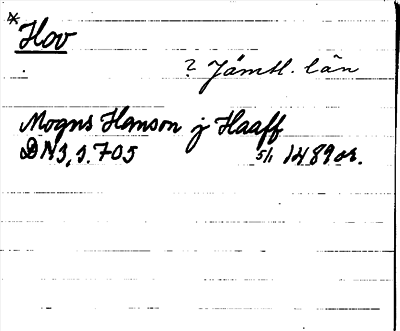 * Hov
? Jämtl. län
Mogns Hanson j Haaff
DN3, s. 705 5/1 1489 or.